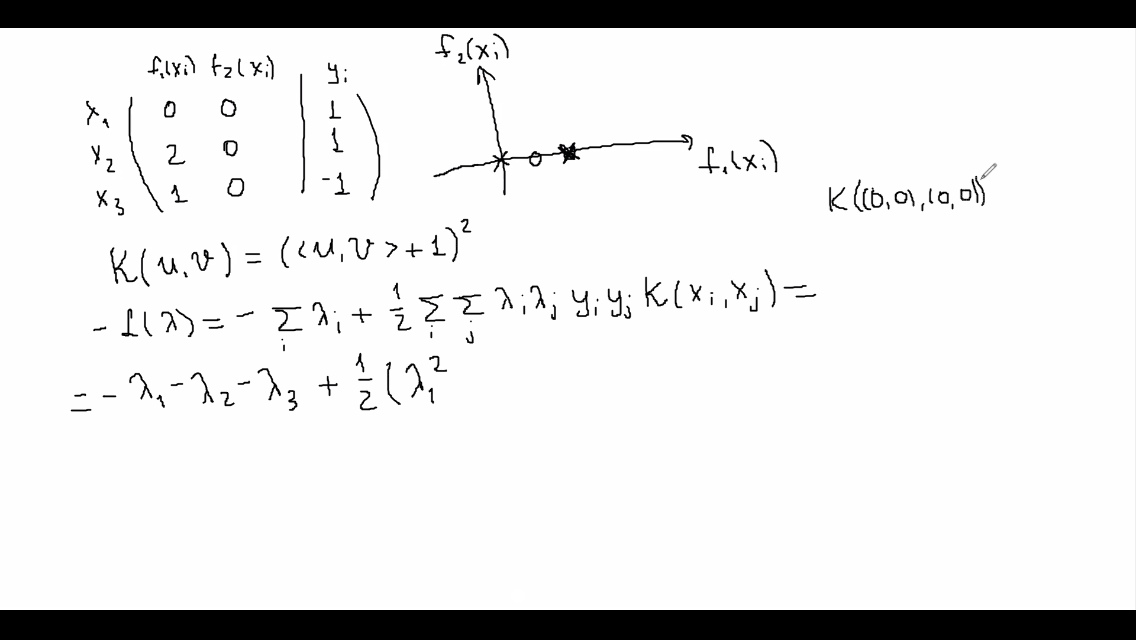 f₁(xᵢ) f₂(xᵢ) yᵢ
x₁ 0 0 1
x₂ 2 0 1
x₃ 1 0 -1
f₂(xᵢ)
f₁(xᵢ)
K((0,0),(0,0))
K(u,v) = (<u,v>+1)²
-L(λ) = - Σᵢ λᵢ + 1/2 Σᵢ Σⱼ λᵢ λⱼ yᵢ yⱼ K(xᵢ, xⱼ) =
= - λ₁ - λ₂ - λ₃ + 1/2 (λ₁²